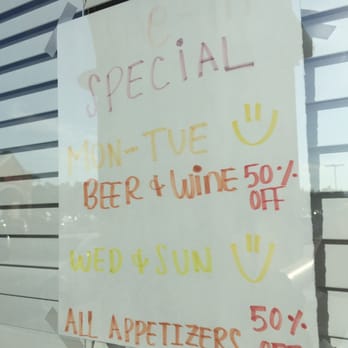 SPECIAL
MON-TUE
BEER & WINE 50% OFF
WED & SUN
ALL APPETIZERS 50% OFF